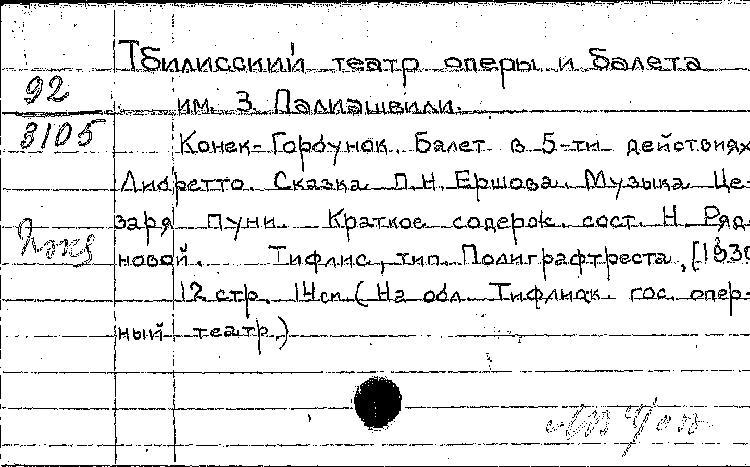 Тбилисский театр оперы и балета
92
им. З. Палиашвили.
3105
Конек-Горбунок. Балет в 5-ти действиях
Либретто. Сказка П.Н. Ершова. Музыка Це-
заря Пуни. Краткое содерж. сост. Н. Ряд-
новой. Тифлис, тип. Полиграфтреста, [193
12 стр. 14 см. (На обл. Тифлиск. гос. опер-
ный театр.)